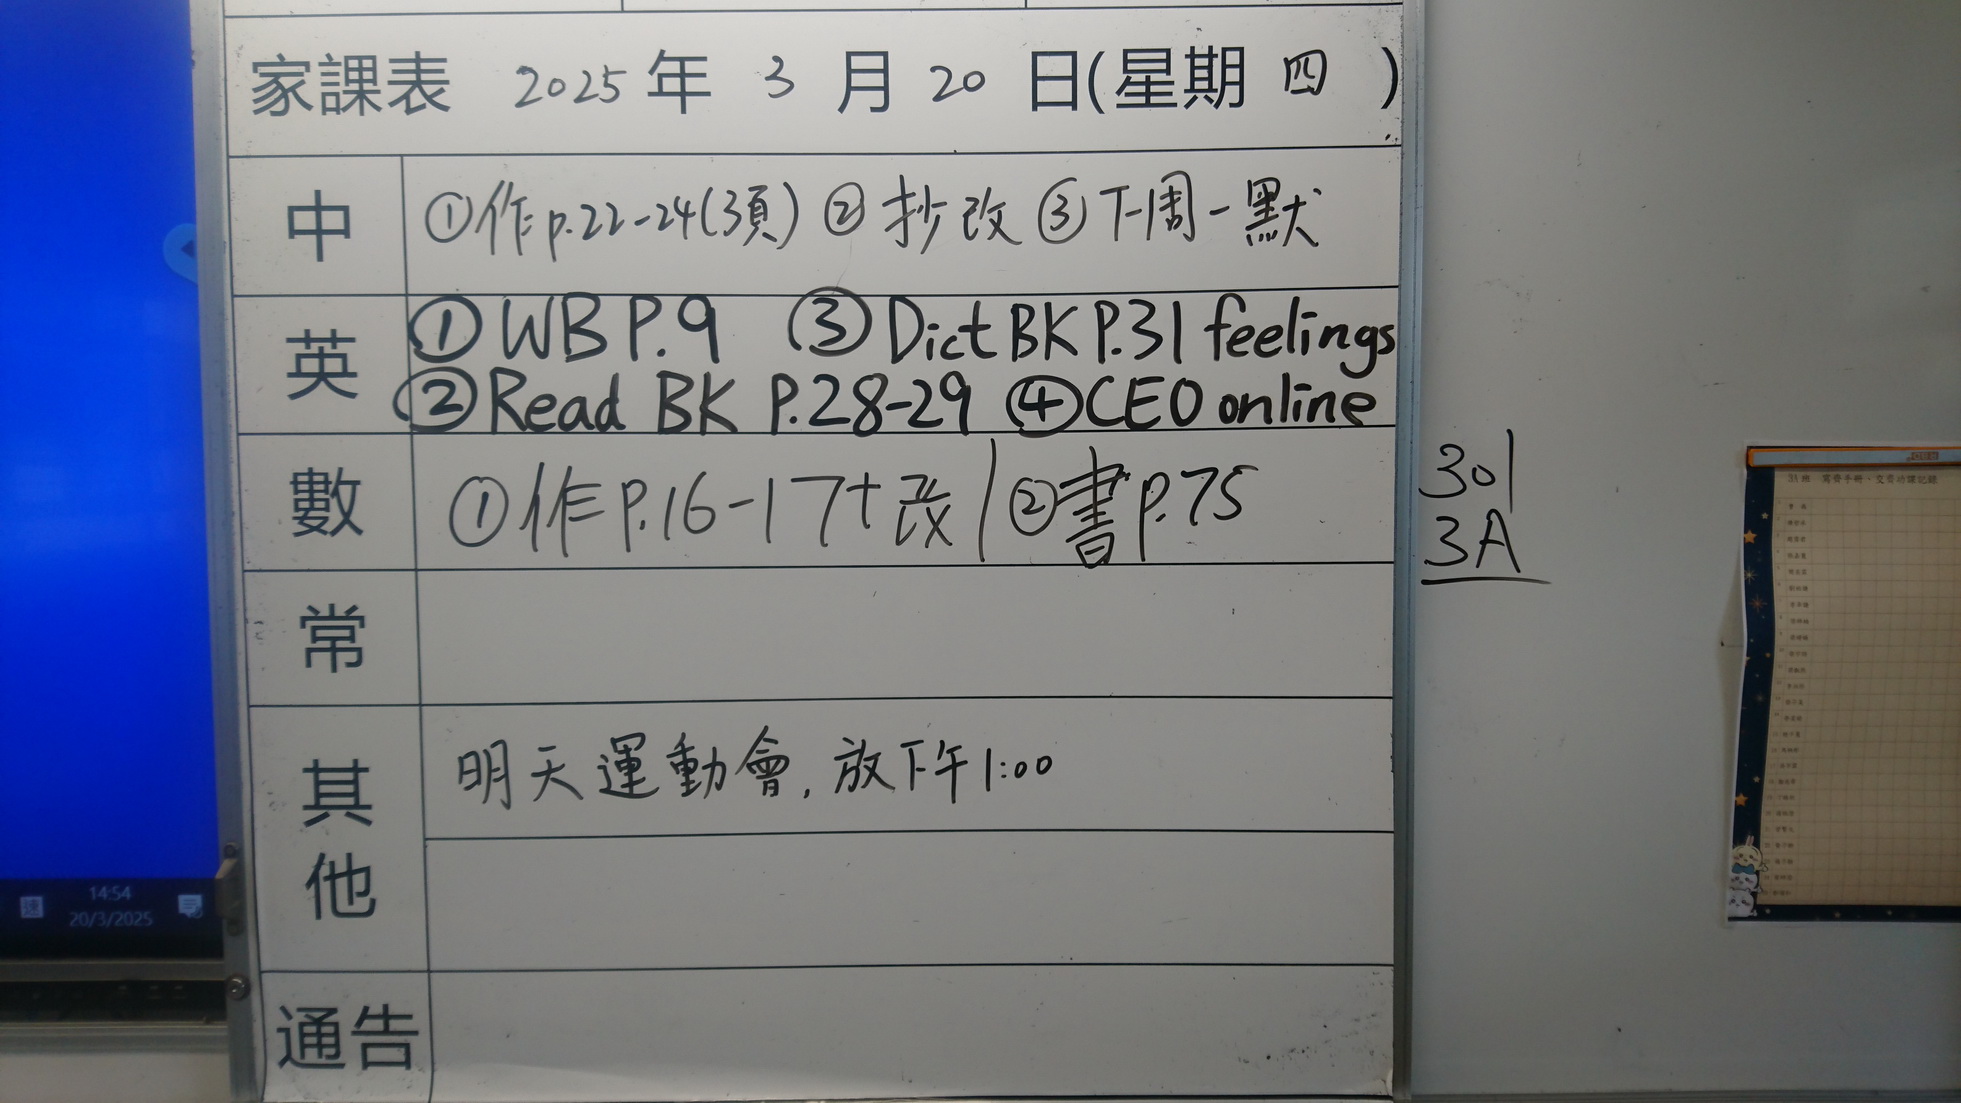 家課表 2025 年 3 月 20 日(星期 四 )
中 ①作p.22-24(預) ② 抄改 ③下周一默
英 ① WB P.9 ③ Dict BK P.31 feelings
② Read BK P.28-29 ④ CEO online
數 ①作P.16-17+改 | ②書p.75
常
其他 明天運動會, 放下午1:00
通告
301
3A
14:54
20/3/2025
速